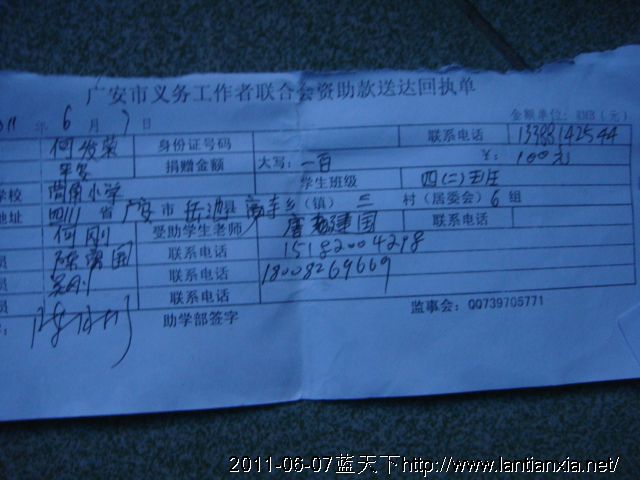 广安市义务工作者联合会资助款送达回执单
年 6 月 7 日 金额单位:RMB(元)
身份证号码 联系电话 13388142544
捐赠金额 大写:一百 ¥: 100元
学校 小学 学生班级 四(二)班
地址 四川 省 广安 市 岳池县 乡(镇) 三 村(居委会) 6 组
何刚 受助学生老师 联系电话
员 联系电话 15182004298
员 吴刚 联系电话 18008269669
助学部签字 监事会:QQ739705771
2011-06-07蓝天下http://www.lantianxia.net/